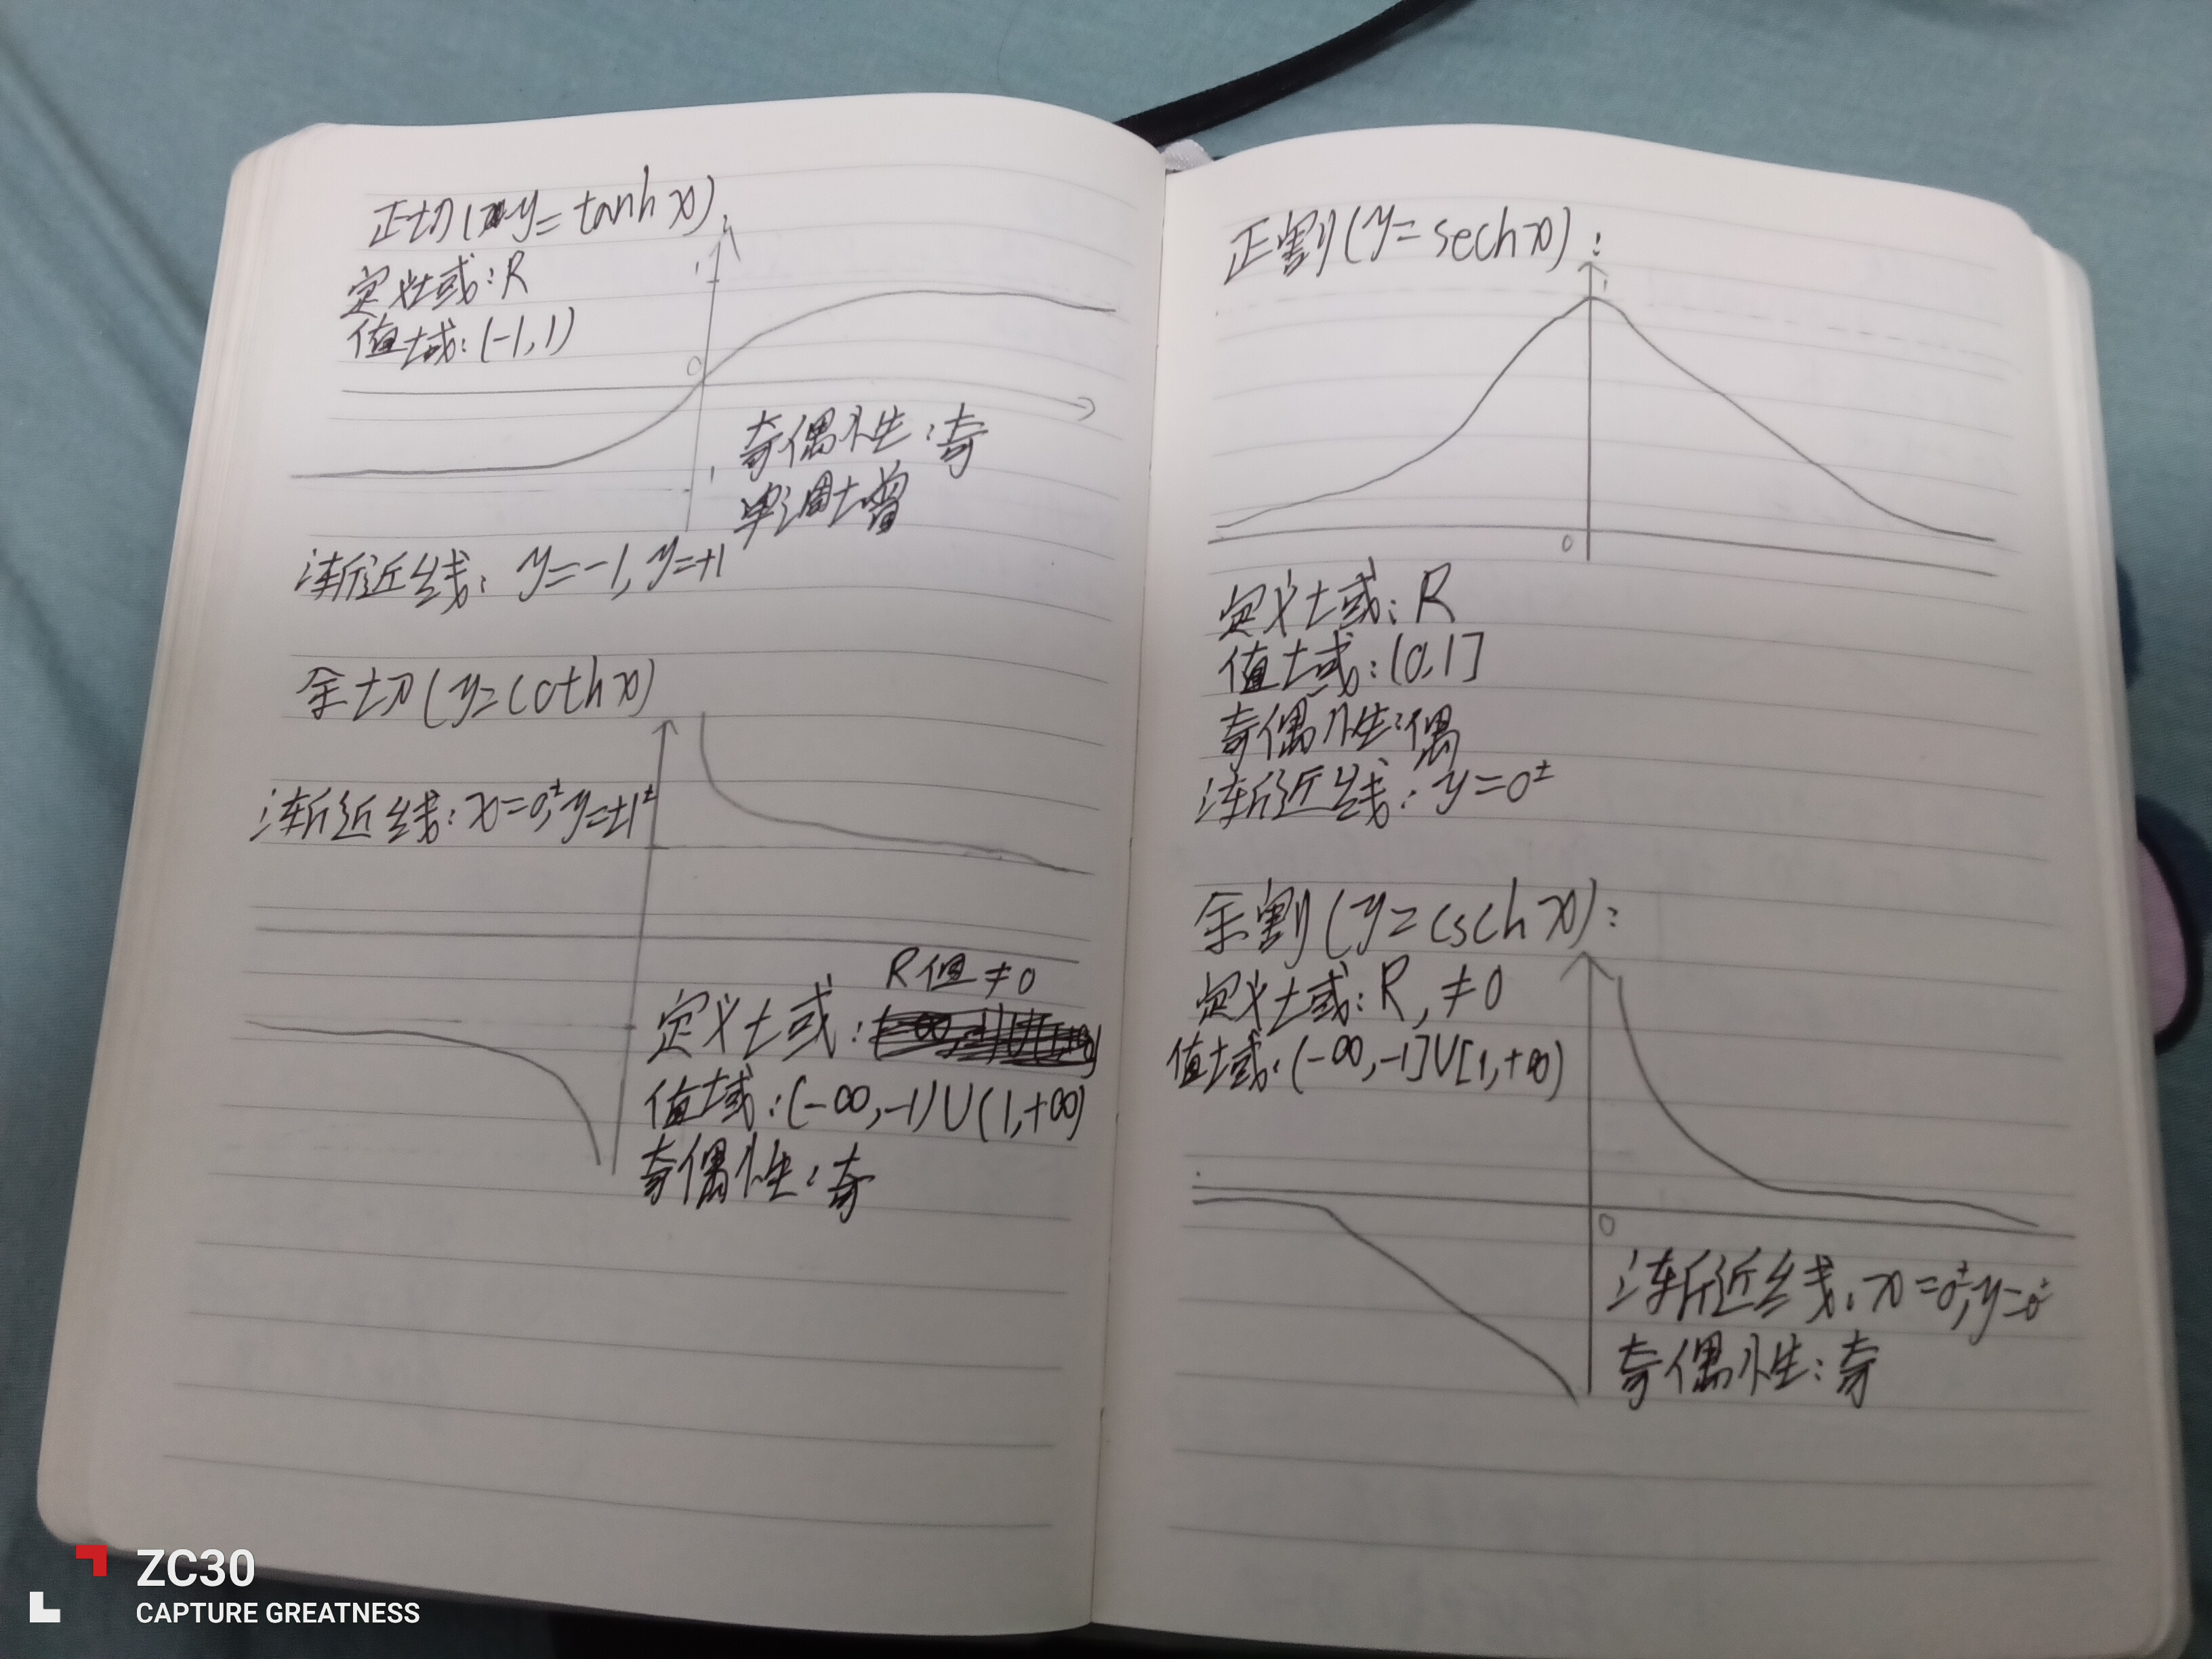 正切(y=tanh x)
定义域:R
值域:(-1,1)
1
0
1
奇偶性:奇
单调增
渐近线:y=-1,y=+1
余切(y=coth x)
渐近线:x=0±,y=±1±
R但≠0
定义域:
值域:(-∞,-1)∪(1,+∞)
奇偶性:奇
正割(y=sech x):
1
0
定义域:R
值域:(0,1]
奇偶性:偶
渐近线:y=0±
余割(y=csch x):
定义域:R,≠0
值域:(-∞,-1]∪[1,+∞)
0
渐近线:x=0±,y=0±
奇偶性:奇
ZC30
CAPTURE GREATNESS